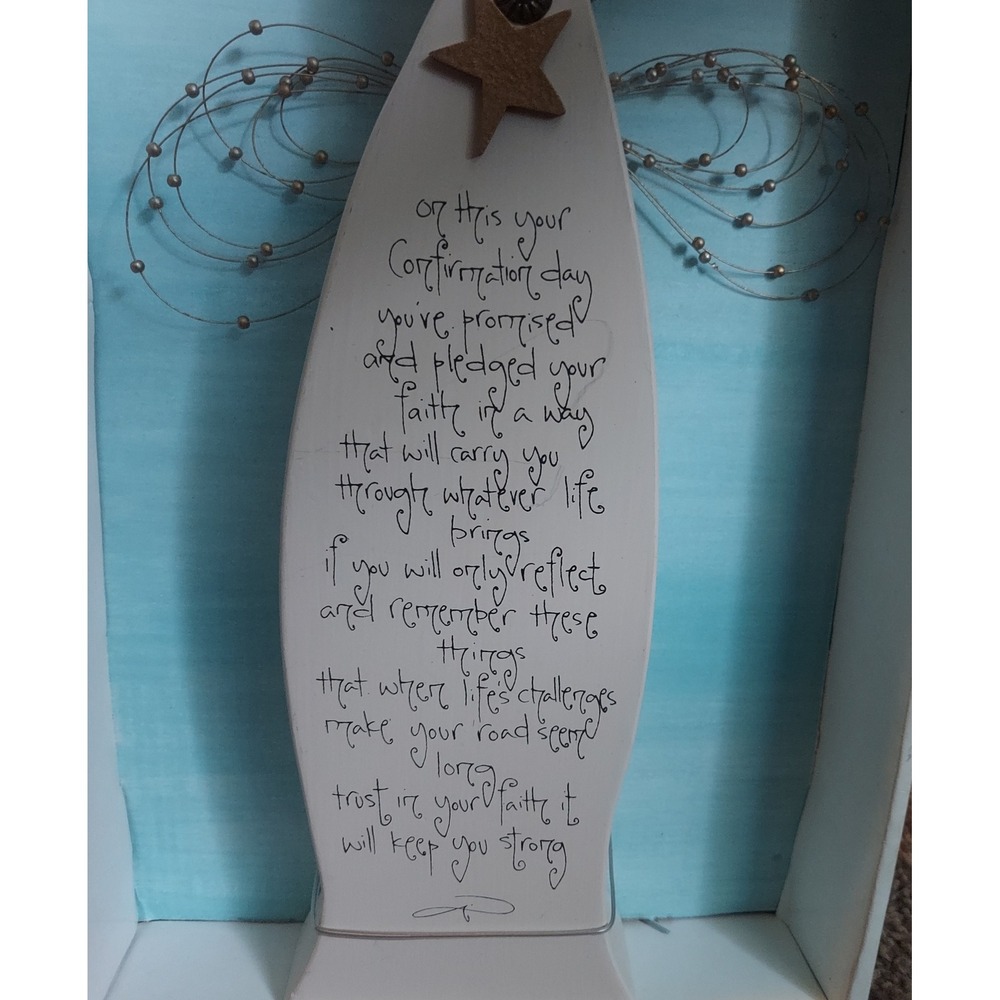 on this your
Confirmation day
you've promised
and pledged your
faith in a way
that will carry you
through whatever life
brings
if you will only reflect
and remember these
things
that when life's challenges
make your road seem
long
trust in your faith it
will keep you strong